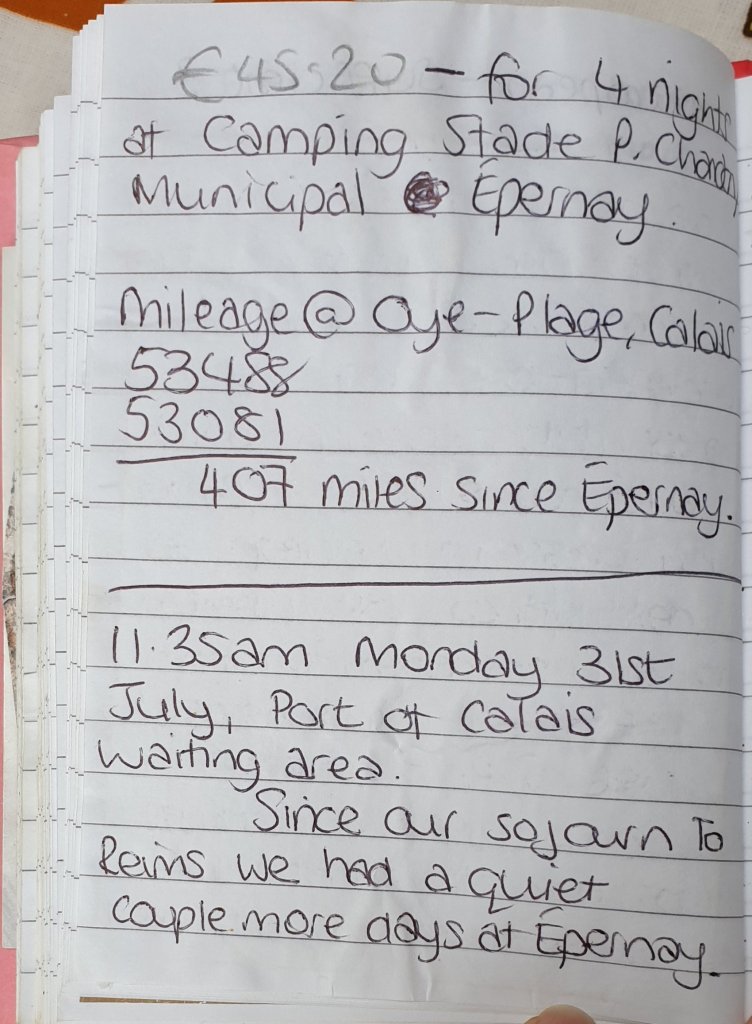 €45.20 – for 4 nights
at Camping Stade P. Chardon
Municipal Épernay.
Mileage @ Oye-Plage, Calais
53488
53081
407 miles since Épernay.
11.35am Monday 31st
July, Port of Calais
waiting area.
Since our sojourn To
Reims we had a quiet
couple more days at Épernay.